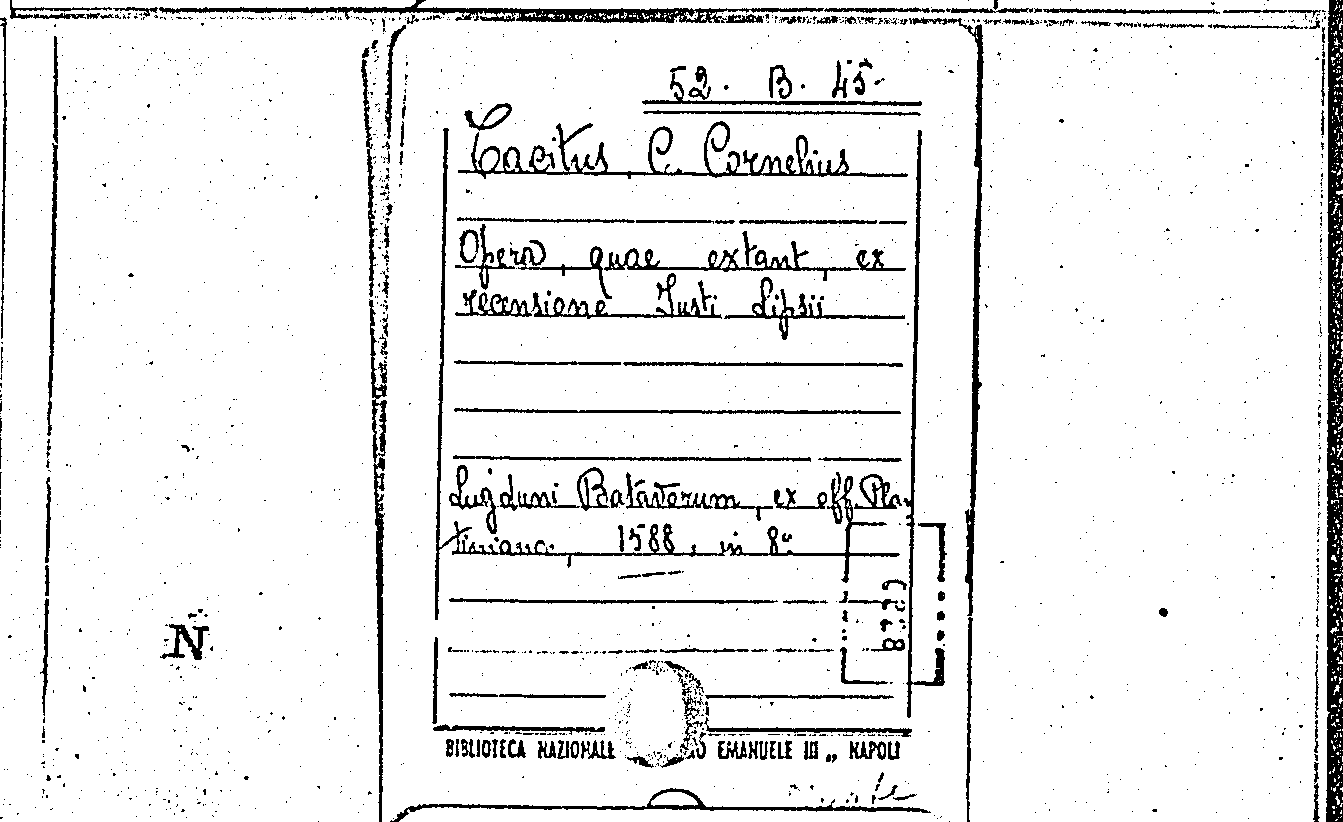 52. B. 45
Tacitus, C. Cornelius
Opera, quae extant, ex
recensione Justi Lipsii
Lugduni Batavorum, ex off. Plan
tiniana, 1588, in 8°
N
BIBLIOTECA NAZIONALE EMANUELE III „ NAPOLI